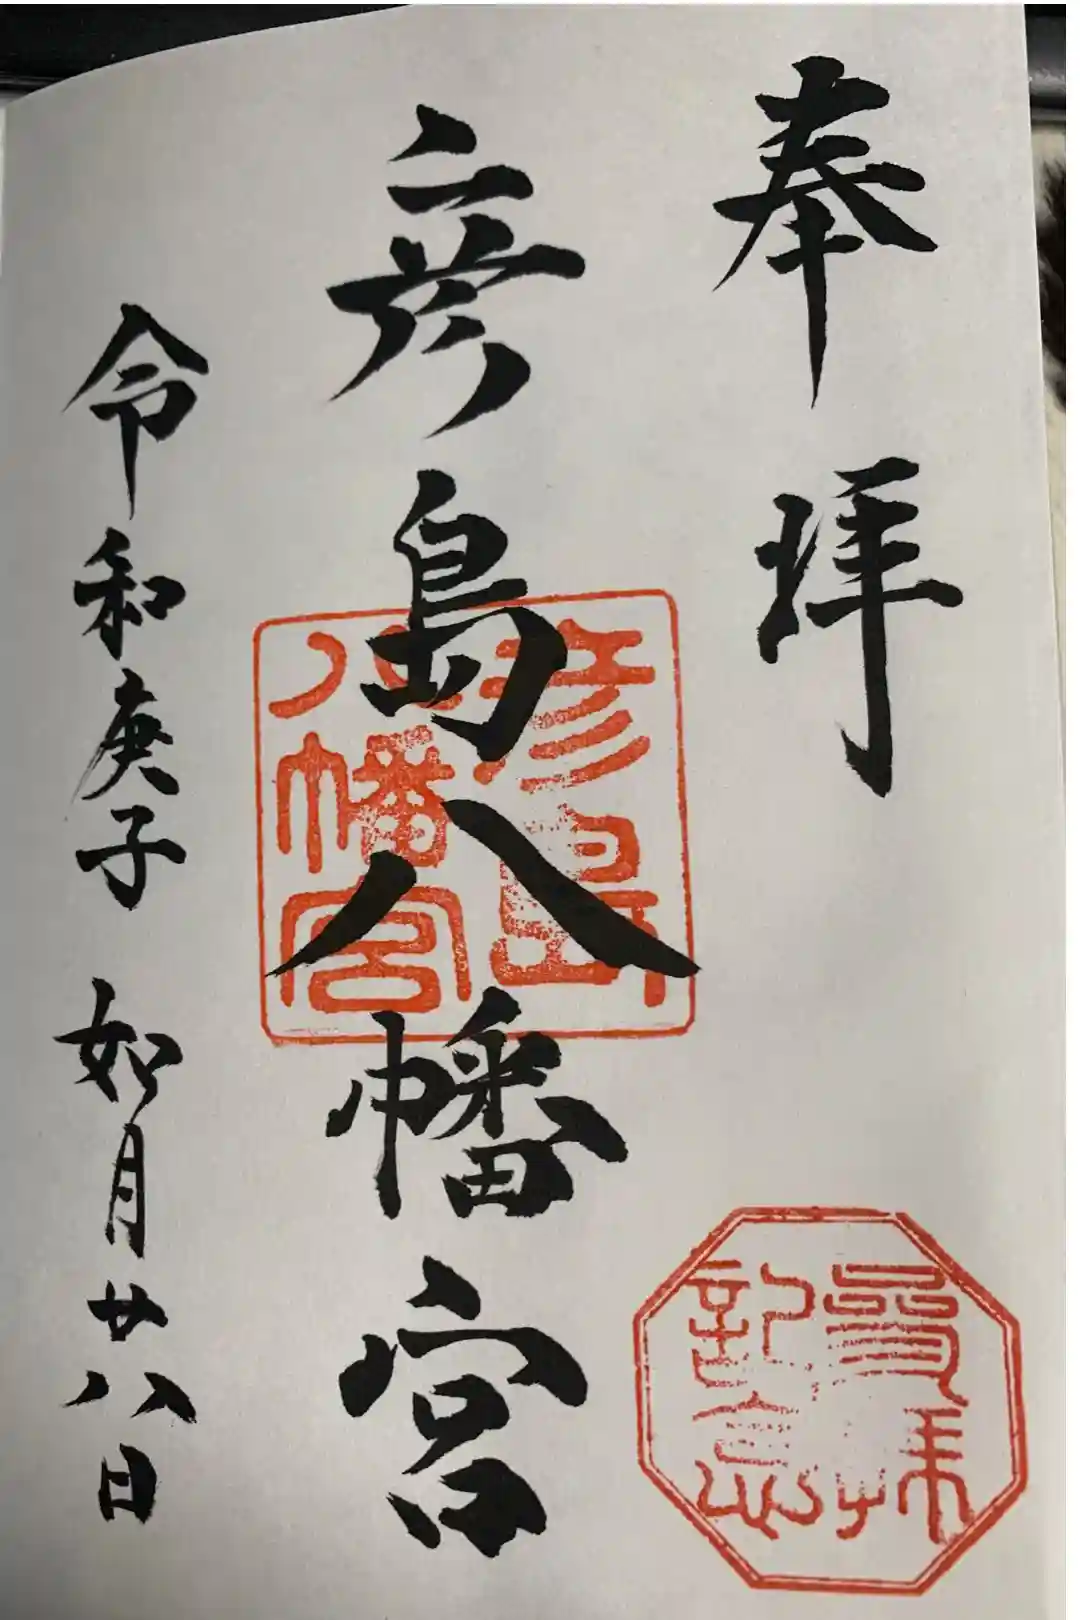 奉拝
彦島八幡宮
令和庚子 如月廿八日
彦島
八幡宮
參拝
記念